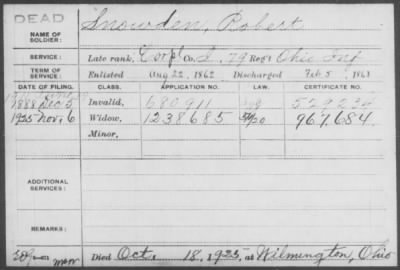 DEAD
NAME OF SOLDIER: Snowden, Robert
SERVICE: Late rank, Corpl Co. I, 79 Reg't Ohio Inf
TERM OF SERVICE: Enlisted Aug 22, 1862 Discharged Feb 5, 1863
DATE OF FILING. CLASS. APPLICATION NO. LAW. CERTIFICATE NO.
1888 Dec 5 Invalid, 680911 529234
1925 Nov 6 Widow, 1238685 967,684
Minor,
ADDITIONAL SERVICES:
REMARKS:
Died Oct. 18, 1925, at Wilmington, Ohio